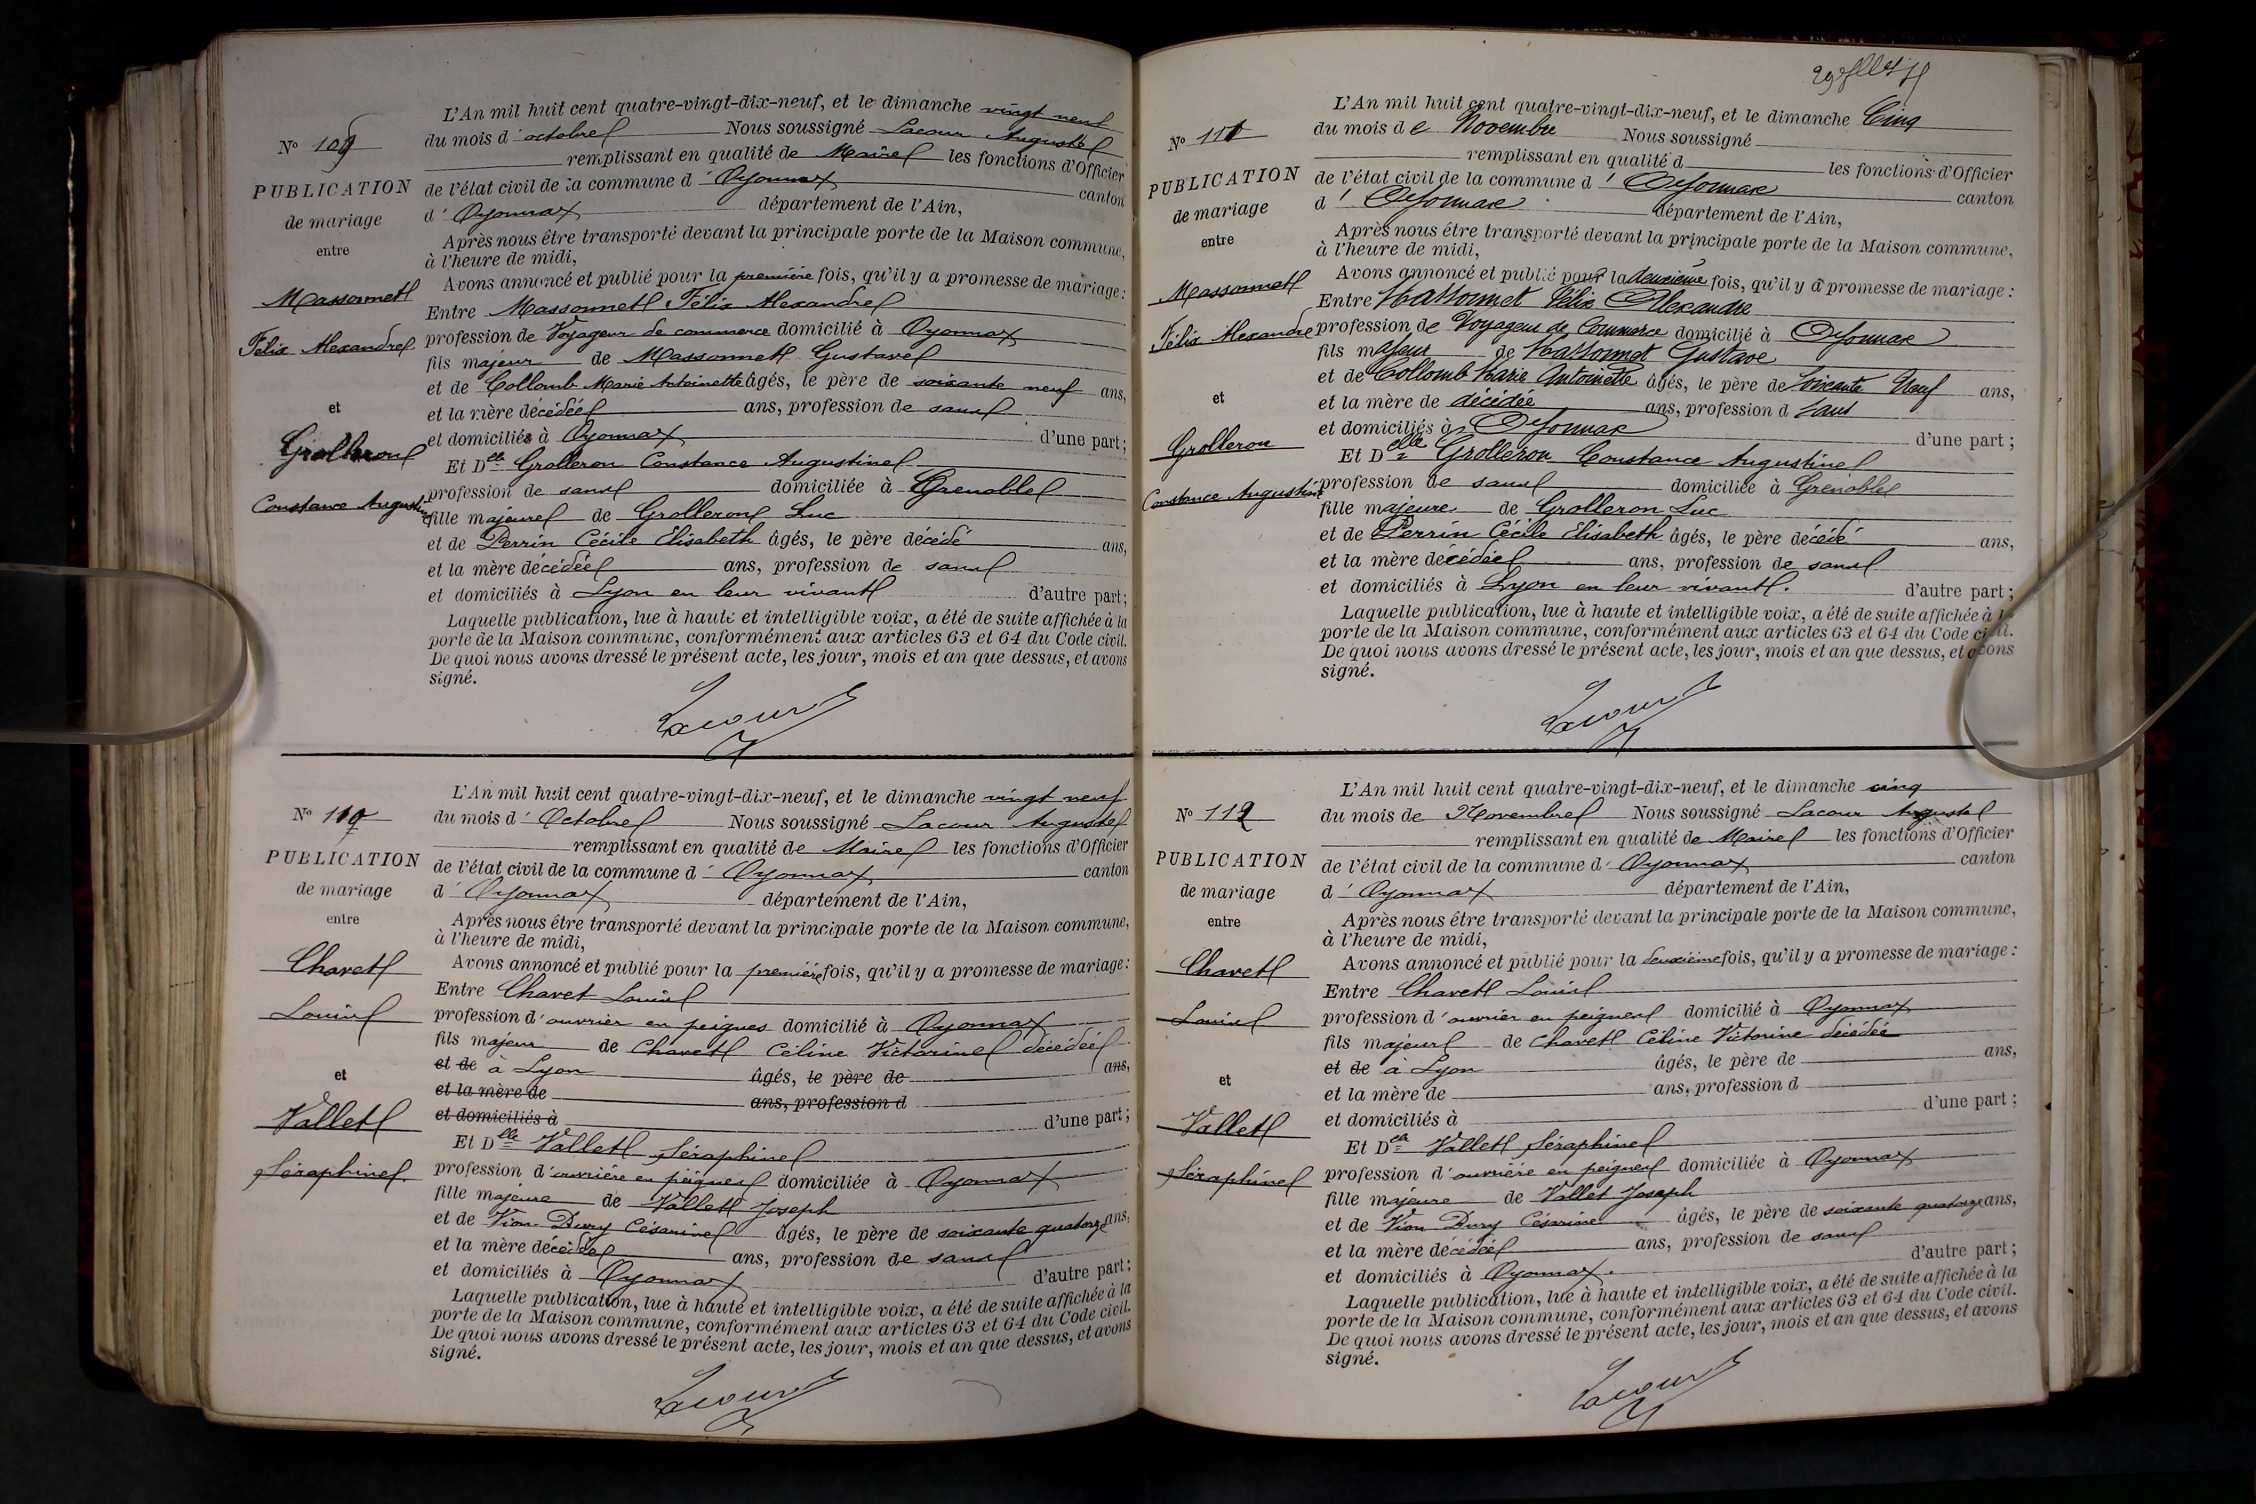 L'An mil huit cent quatre-vingt-dix-neuf, et le dimanche vingt neuf
du mois d'octobre Nous soussigné Lacour Auguste
remplissant en qualité de Maire les fonctions d'Officier
de l'état civil de la commune d'Oyonnax canton
d'Oyonnax département de l'Ain,
Après nous être transporté devant la principale porte de la Maison commune,
à l'heure de midi,
Avons annoncé et publié pour la première fois, qu'il y a promesse de mariage :
Entre Massonnet Félix Alexandre
profession de Voyageur de commerce domicilié à Oyonnax
fils majeur de Massonnet Gustave
et de Collomb Marie Antoinette âgés, le père de soixante neuf ans,
et la mère décédée ans, profession de sans
et domiciliés à Oyonnax d'une part ;
Et Dlle Grolleron Constance Augustine
profession de sans domiciliée à Grenoble
fille majeure de Grolleron Luc
et de Perrin Cécile Elisabeth âgés, le père décédé ans,
et la mère décédée ans, profession de sans
et domiciliés à Lyon en leur vivant d'autre part ;
Laquelle publication, lue à haute et intelligible voix, a été de suite affichée à la
porte de la Maison commune, conformément aux articles 63 et 64 du Code civil.
De quoi nous avons dressé le présent acte, les jour, mois et an que dessus, et avons
signé.
Lacour
No 109
PUBLICATION
de mariage
entre
Massonnet
Félix Alexandre
et
Grolleron
Constance Augustine
No 110
PUBLICATION
de mariage
entre
Chavet
Louis
et
Vallet
Séraphine
L'An mil huit cent quatre-vingt-dix-neuf, et le dimanche vingt neuf
du mois d'Octobre Nous soussigné Lacour Auguste
remplissant en qualité de Maire les fonctions d'Officier
de l'état civil de la commune d'Oyonnax canton
d'Oyonnax département de l'Ain,
Après nous être transporté devant la principale porte de la Maison commune,
à l'heure de midi,
Avons annoncé et publié pour la première fois, qu'il y a promesse de mariage :
Entre Chavet Louis
profession d'ouvrier en peignes domicilié à Oyonnax
fils majeur de Chavet Céline Victorine décédée
et de à Lyon âgés, le père de ans,
et la mère de ans, profession d
et domiciliés à d'une part ;
Et Dlle Vallet Séraphine
profession d'ouvrière en peignes domiciliée à Oyonnax
fille majeure de Vallet Joseph
et de Vion Dury Césarine âgés, le père de soixante quatorze ans,
et la mère décédée ans, profession de sans
et domiciliés à Oyonnax d'autre part ;
Laquelle publication, lue à haute et intelligible voix, a été de suite affichée à la
porte de la Maison commune, conformément aux articles 63 et 64 du Code civil.
De quoi nous avons dressé le présent acte, les jour, mois et an que dessus, et avons
signé.
Lacour
No 111
PUBLICATION
de mariage
entre
Massonnet
Félix Alexandre
et
Grolleron
Constance Augustine
L'An mil huit cent quatre-vingt-dix-neuf, et le dimanche Cinq
du mois de Novembre Nous soussigné
remplissant en qualité d les fonctions d'Officier
de l'état civil de la commune d'Oyonnax canton
d'Oyonnax département de l'Ain,
Après nous être transporté devant la principale porte de la Maison commune,
à l'heure de midi,
Avons annoncé et publié pour la deuxième fois, qu'il y a promesse de mariage :
Entre Massonnet Félix Alexandre
profession de Voyageur de Commerce domicilié à Oyonnax
fils majeur de Massonnet Gustave
et de Collomb Marie Antoinette âgés, le père de Soixante Neuf ans,
et la mère de décédée ans, profession d Sans
et domiciliés à Oyonnax d'une part ;
Et Delle Grolleron Constance Augustine
profession de sans domiciliée à Grenoble
fille majeure de Grolleron Luc
et de Perrin Cécile Elisabeth âgés, le père décédé ans,
et la mère décédée ans, profession de sans
et domiciliés à Lyon en leur vivant. d'autre part ;
Laquelle publication, lue à haute et intelligible voix, a été de suite affichée à la
porte de la Maison commune, conformément aux articles 63 et 64 du Code civil.
De quoi nous avons dressé le présent acte, les jour, mois et an que dessus, et avons
signé.
Lacour
No 112
PUBLICATION
de mariage
entre
Chavet
Louis
et
Vallet
Séraphine
L'An mil huit cent quatre-vingt-dix-neuf, et le dimanche cinq
du mois de Novembre Nous soussigné Lacour Auguste
remplissant en qualité de Maire les fonctions d'Officier
de l'état civil de la commune d'Oyonnax canton
d'Oyonnax département de l'Ain,
Après nous être transporté devant la principale porte de la Maison commune,
à l'heure de midi,
Avons annoncé et publié pour la deuxième fois, qu'il y a promesse de mariage :
Entre Chavet Louis
profession d'ouvrier en peignes domicilié à Oyonnax
fils majeur de Chavet Céline Victorine décédée
et de à Lyon âgés, le père de ans,
et la mère de ans, profession d
et domiciliés à d'une part ;
Et Dlle Vallet Séraphine
profession d'ouvrière en peignes domiciliée à Oyonnax
fille majeure de Vallet Joseph
et de Vion Dury Césarine âgés, le père de soixante quatorze ans,
et la mère décédée ans, profession de sans
et domiciliés à Oyonnax. d'autre part ;
Laquelle publication, lue à haute et intelligible voix, a été de suite affichée à la
porte de la Maison commune, conformément aux articles 63 et 64 du Code civil.
De quoi nous avons dressé le présent acte, les jour, mois et an que dessus, et avons
signé.
Lacour